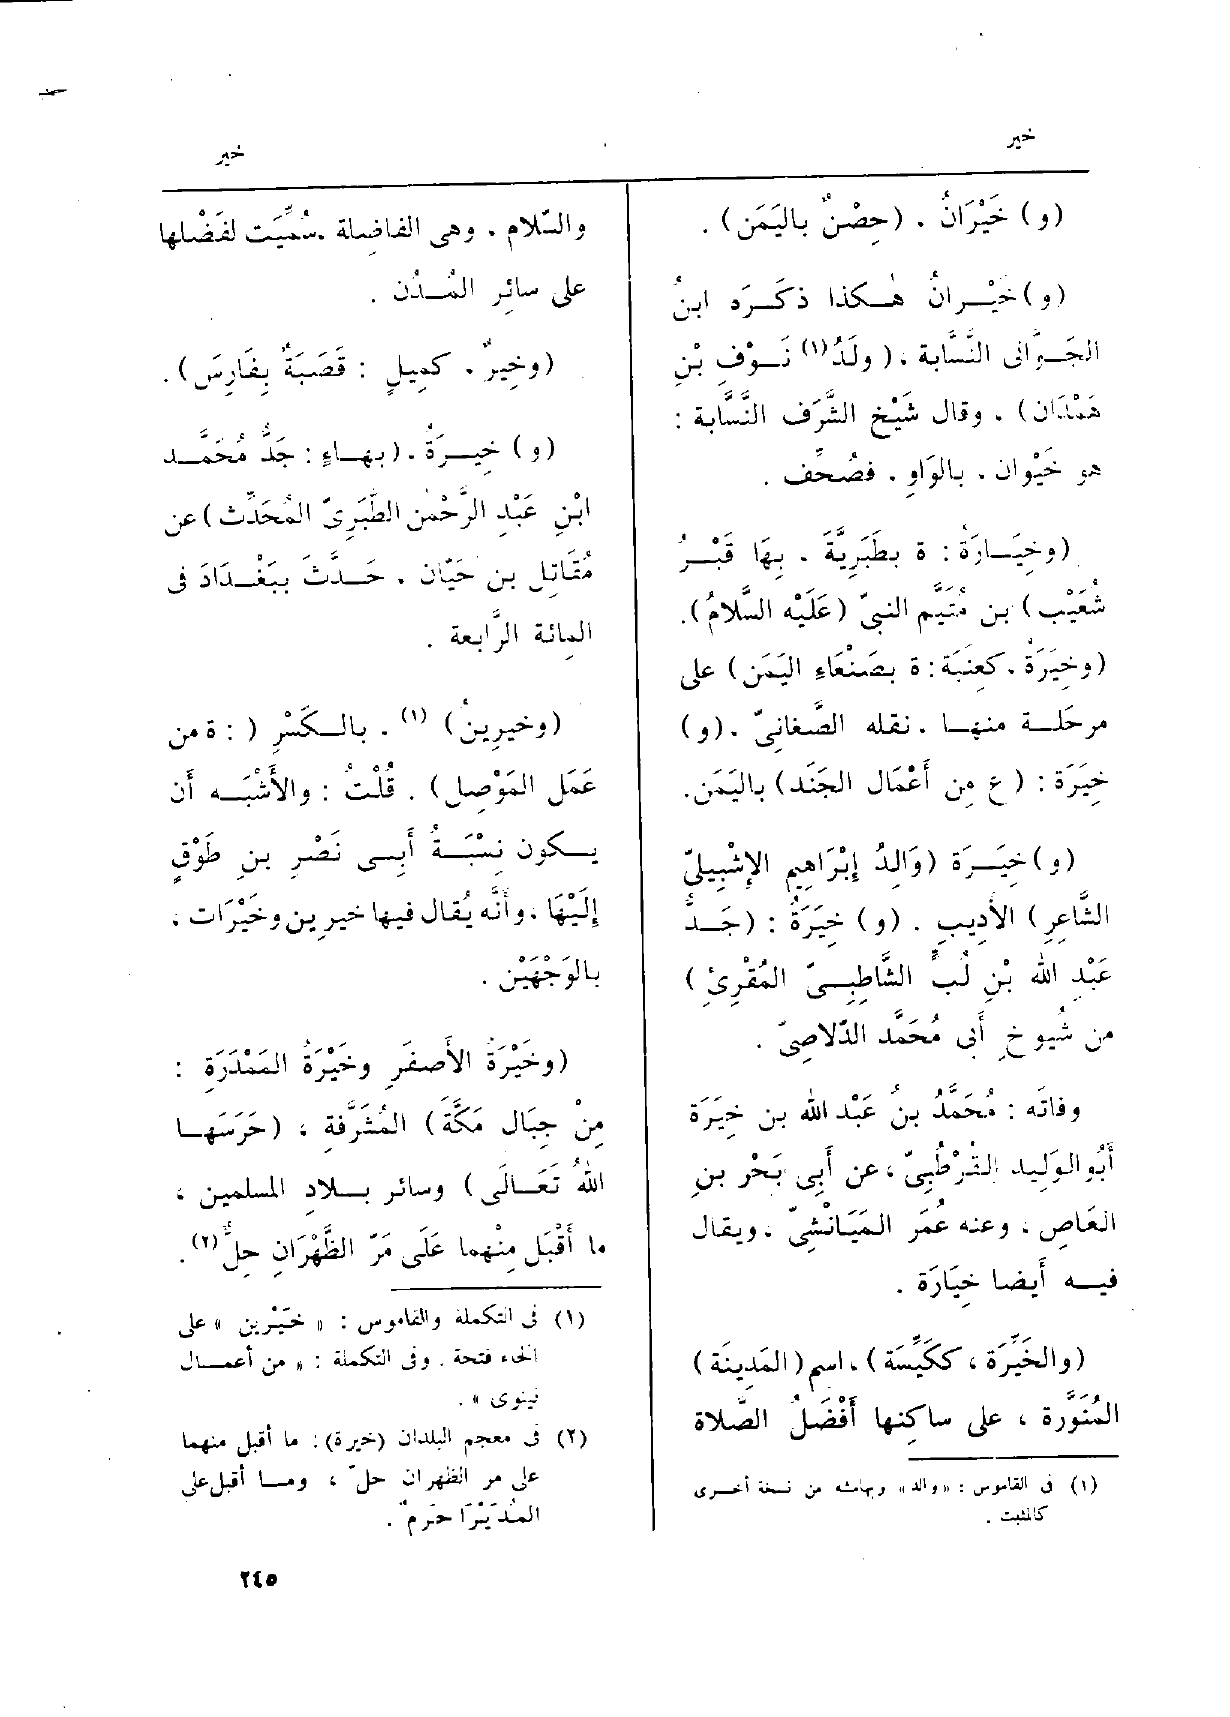 خير
(و) خَيْرَانُ ، (حِصْنٌ باليَمَن) .
(و) خَيْرانُ هٰكذا ذكَره ابنُ
الجَوّانى النَّسَّابة ، (ولَدُ(١) نَوْفِ بْنِ
هَمْدَان) ، وقال شَيْخ الشَّرَف النَّسَّابة :
هو خَيْوان ، بالوَاوِ ، فصُحِّف .
(وخِيَارَةُ : ة بطَبَرِيَّةَ ، بِهَا قَبْرُ
شُعَيْب) بن مُتَيَّم النبيّ (عَلَيْه السَّلامُ).
(وخِيَرَةُ ، كعِنَبَة : ة بصَنْعَاءِ اليَمَن) على
مرحَلة منها ، نقله الصَّغانِيّ ، (و)
خِيَرَة : (ع مِن أَعْمَال الجَنَد) باليَمَن.
(و) خِيَرَة (وَالِدُ إِبْرَاهِيم الإِشْبِيلِيّ
الشَّاعِرِ) الأَدِيبِ . (و) خِيَرَةُ : (جَدُّ
عَبْدِ الله بْنِ لُبٍّ الشَّاطِبِىّ المُقْرِئِ)
من شُيوخِ أَبى مُحَمَّد الدّلاصِىّ .
وفاتَه : مُحَمَّدُ بنُ عَبْد الله بن خِيَرَة
أَبُو الوَلِيد القُرْطُبِىّ ، عن أَبِى بَحْر بنِ
العَاصِ ، وعنه عُمَر المَيَانْشِىّ ، ويقال
فيه أَيضا خِيَارَة .
(والخَيِّرَة ، ككَيِّسَة) ، اسم (المَدِينَة)
المُنَوَّرة ، على ساكِنها أَفْضَلُ الصَّلاة
(١) فى القاموس : «والد» وبهامشه من نسخة أخرى
كالمثبت .
خير
والسّلام ، وهى الفاضِلة ، سُمِّيَت لفَضْلها
على سائِرِ المُدُن .
(وخِيرٌ ، كمِيلٍ : قَصَبَةٌ بِفَارِسَ).
(و) خِيرَةُ ، (بهاءٍ : جَدُّ مُحَمَّد
ابْنِ عَبْدِ الرَّحْمٰن الطَّبَرِىّ المُحَدِّث) عن
مُقَاتِل بن حَيّان ، حَدَّثَ ببَغْدَادَ فى
المِائة الرَّابعة .
(وخيرِينُ) (١) ، بالكَسْرِ ( : ة من
عَمَل المَوْصِل) . قُلْتُ : والأَشْبَه أَن
يكون نِسْبَةُ أَبِى نَصْرِ بنِ طَوْقٍ
إِلَيْهَا ، وأَنَّه يُقال فيها خيرِين وخَيْرَات ،
بالوَجْهَيْن .
(وخَيْرَةُ الأَصفَرِ وخَيْرَةُ المَمْدَرَةِ :
مِنْ جِبَال مَكَّةَ) المُشَرَّفةِ ، (حَرَسَها
اللهُ تَعَالَى) وسائر بلادِ المسلمين ،
ما أَقْبَل مِنْهما عَلَى مَرّ الظَّهْرَانِ حِلٌّ(٢).
(١) فى التكملة والقاموس : « خَيْرين » على
الخاء فتحة . وفى التكملة : « من أعمال
نينوى » .
(٢) فى معجم البلدان (خيرة) : ما أقبل منهما
على مر الظهران حلّ ، وما أقبل على
المُدَيْرَا حَرمٌ .
٢٤٥